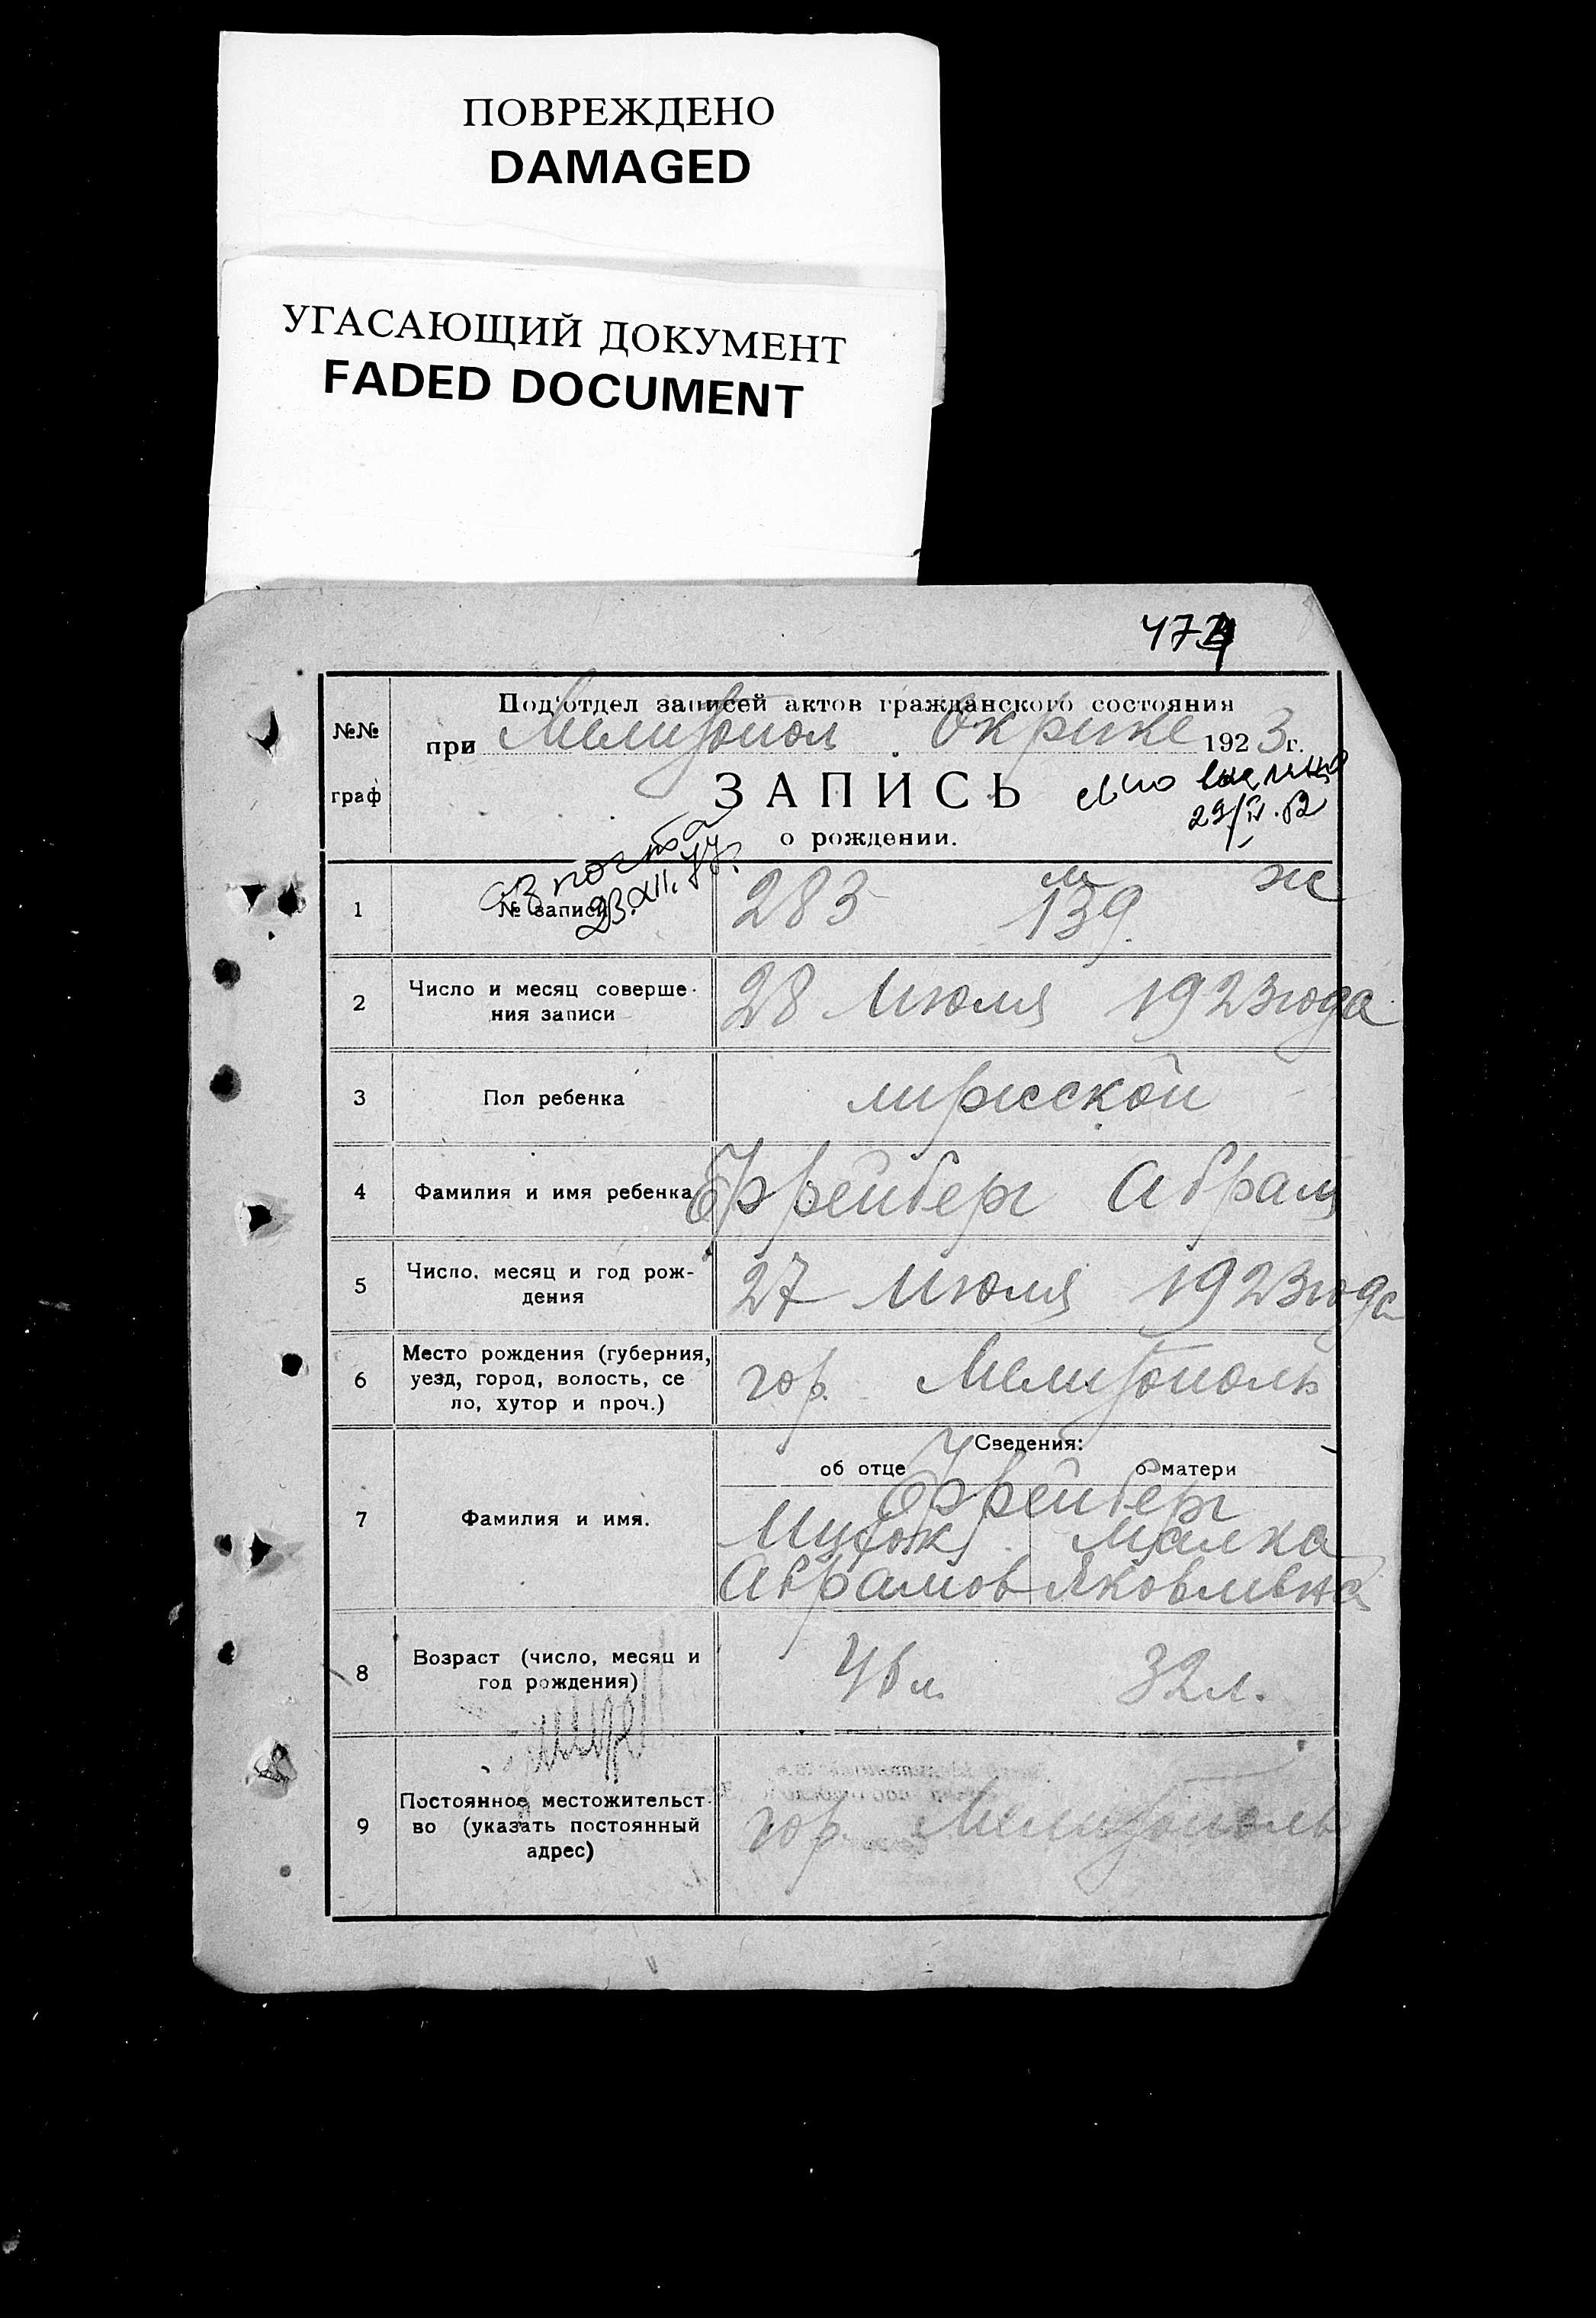 ПОВРЕЖДЕНО
DAMAGED
УГАСАЮЩИЙ ДОКУМЕНТ
FADED DOCUMENT
№№ граф
Под'отдел записей актов гражданского состояния
при Мелитопол. Окрике 1923 г.
ЗАПИСЬ
о рождении.
1 № записи 283 м 139. ж
2 Число и месяц соверше-
ния записи 28 Июля 1923 года
3 Пол ребенка мужской
4 Фамилия и имя ребенка Фрейберг Абрам
5 Число, месяц и год рож-
дения 27 Июля 1923 года
6 Место рождения (губерния,
уезд, город, волость, се
ло, хутор и проч.) гор. Мелитополь
Сведения:
об отце о матери
7 Фамилия и имя. Фрейберг
Ицгок Малка
Абрамов Яковлевна
8 Возраст (число, месяц и
год рождения) 46 л. 32 л.
9 Постоянное местожительст-
во (указать постоянный
адрес) гор. Мелитополь